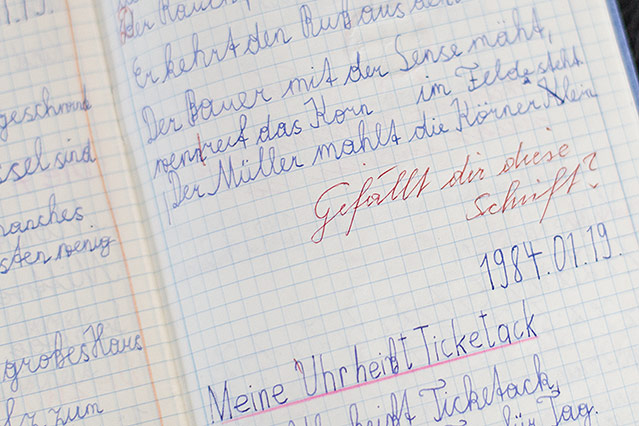 1.19.
geschminkt
sind
manches
wenig
großes Haus
zum
der Rauch
Er kehrt den Ruß aus
Der Bauer mit der Sense mäht,
wenn reif das Korn im Felde steht.
Der Müller mahlt die Körner klein
Gefällt dir diese
Schrift?
1984.01.19.
Meine Uhr heißt Ticketack
heißt Ticketack,
für Tag.